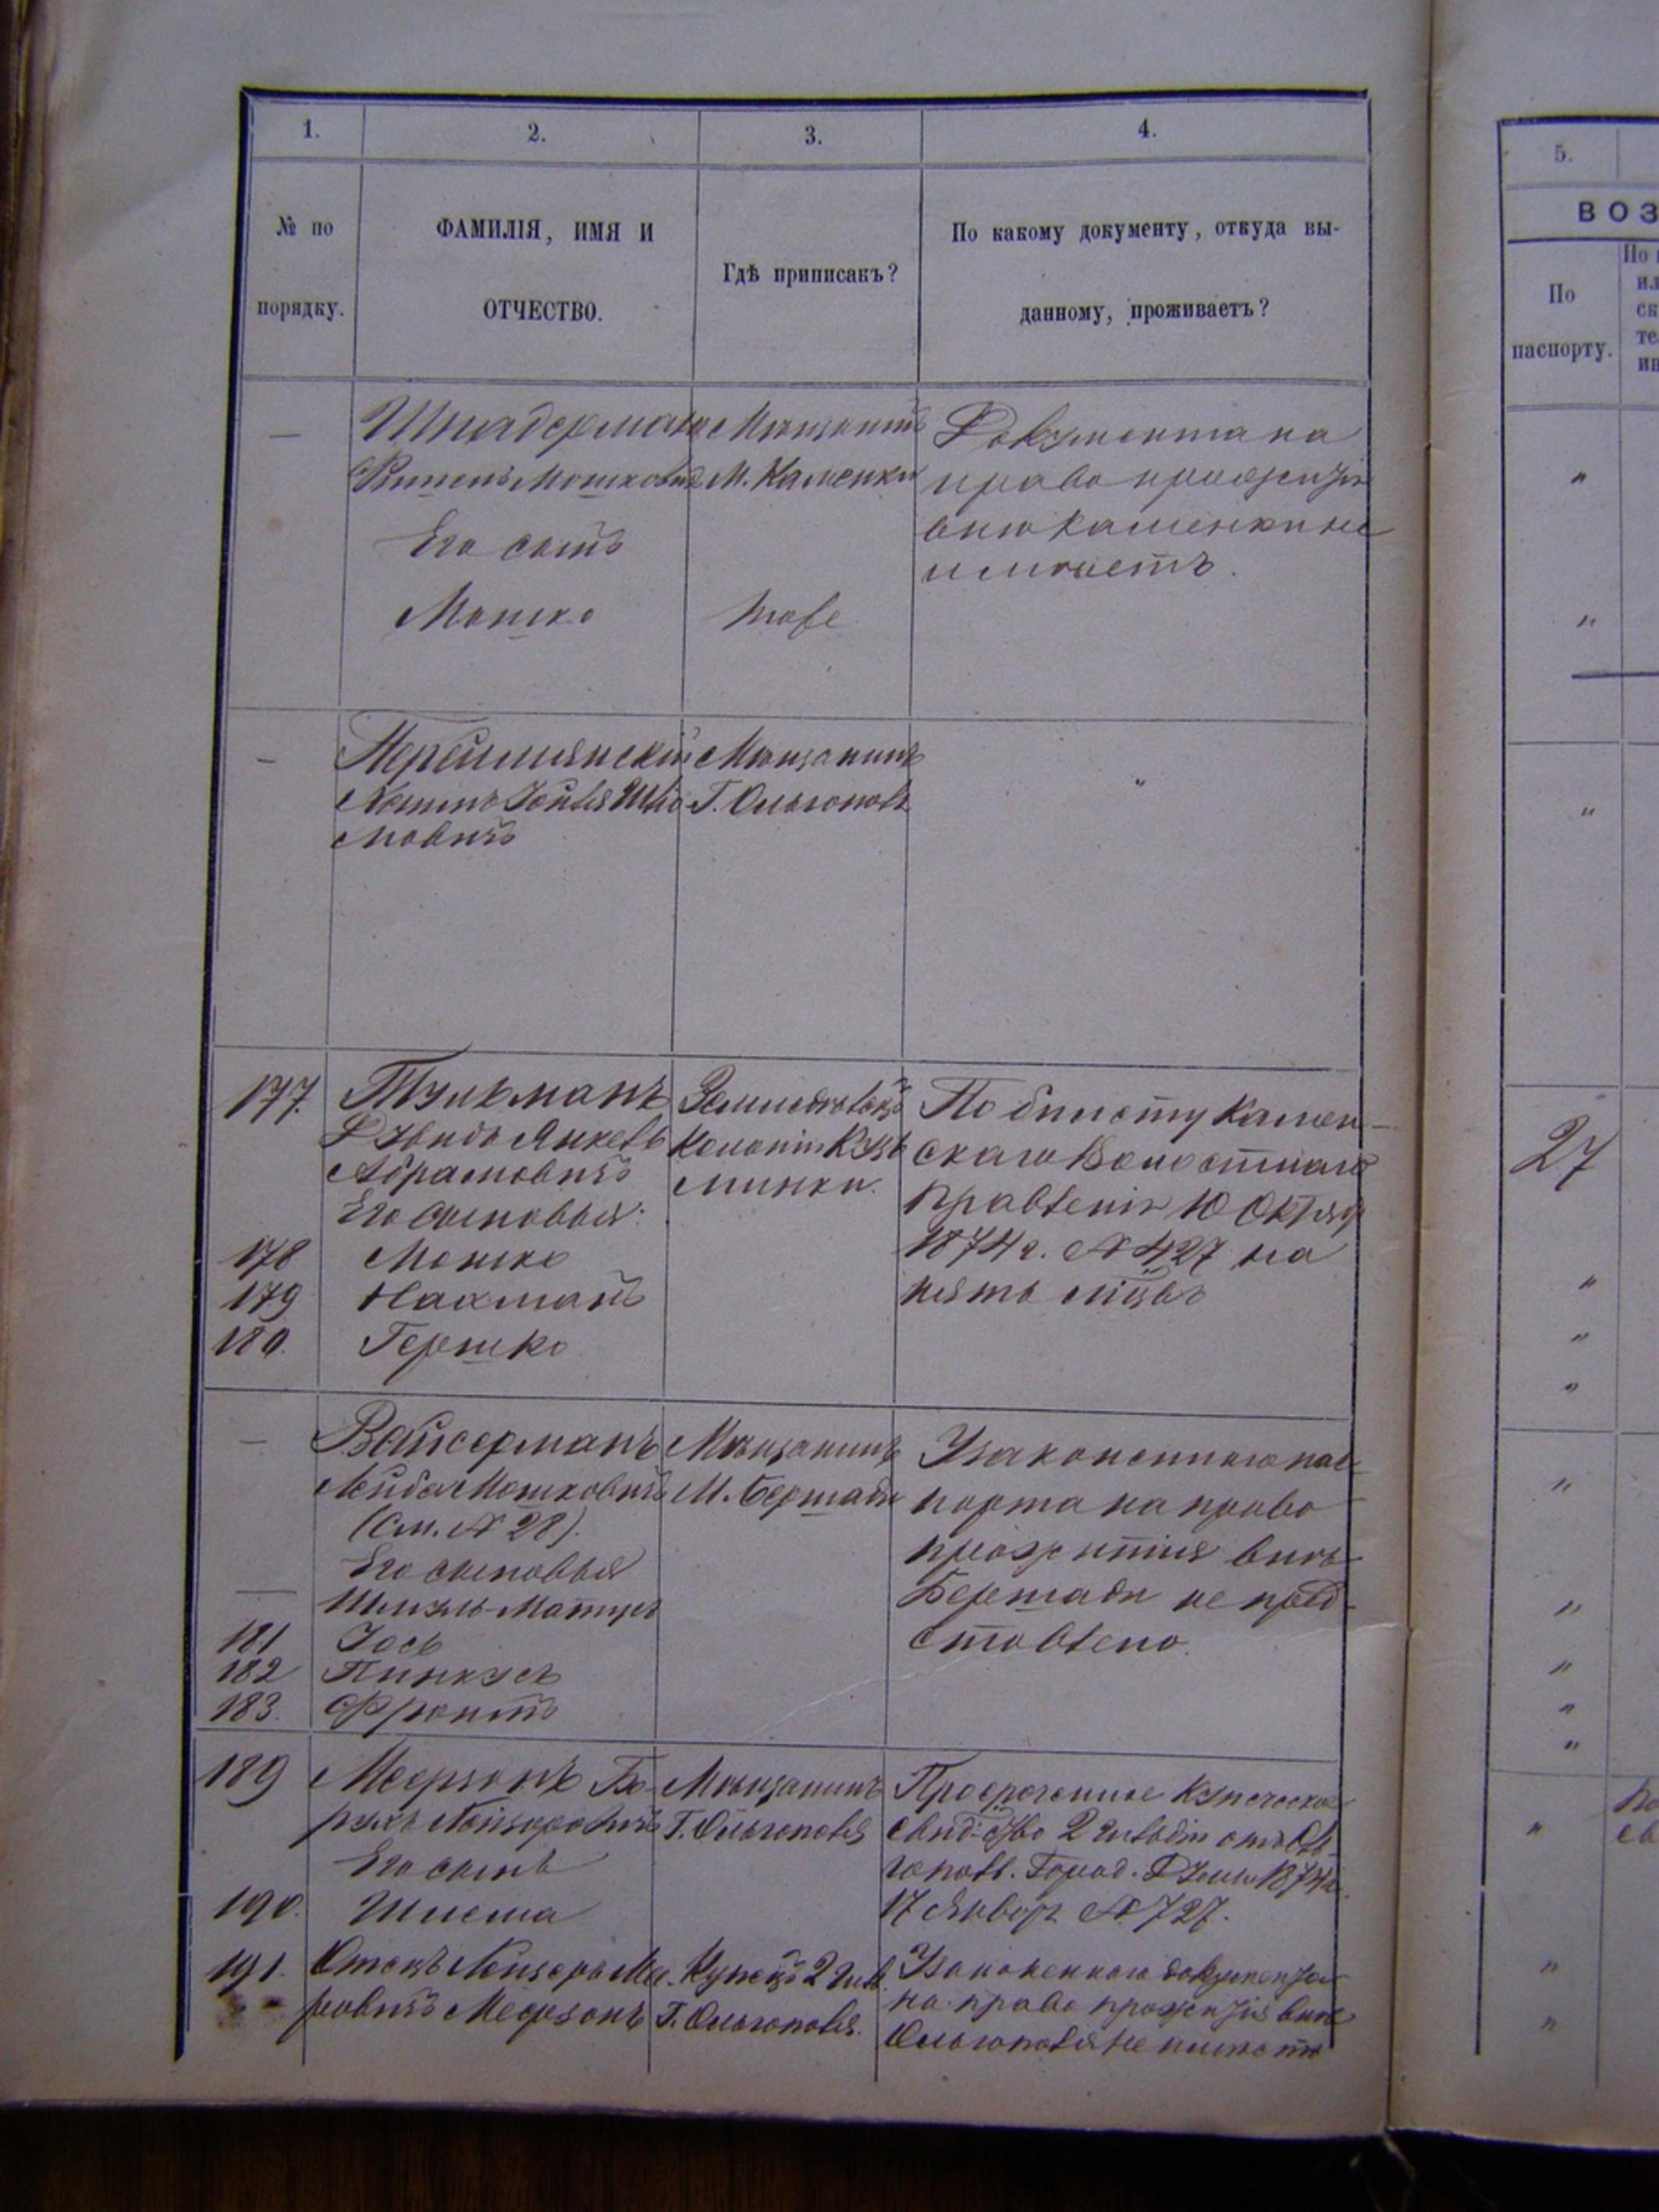 1.
2.
3.
4.
№ по
порядку.
ФАМИЛІЯ, ИМЯ И
ОТЧЕСТВО.
Гдѣ приписакъ?
По какому документу, откуда вы-
данному, проживаетъ?
—
Шнидерман
Мошковичъ
Его сынъ
Мошко
Мѣщанинъ
М. Каменки
тоже
Документа на
право прожитія
внѣ Каменки не
имѣетъ.
—
Мѣщанинъ
Г. Ольгополь
мовичъ
"
177.
Тульманъ
Дувидъ Янкель
Абрамовичъ
Его сыновья:
178
Мошко
179
Нахманъ
180.
Гершко
Земледѣлецъ
Колоніи Кузь
минки.
По билету Камен-
скаго Волостнаго
Правленія 10 Октябр
1874 г. № 427 на
пять лицъ
—
Вайсерманъ
Лейба Мошковичъ
(См. № 28).
Его сыновья
—
Шмуль-Мотиръ
181
Іось
182
Пинкусъ
183.
Мѣщанинъ
М. Бершади
Узаконеннаго пас-
порта на право
прожитія внѣ
Бершади не пред-
ставлено.
189
Меерзонъ Бо-
рухъ Лейзеровичъ
Его сынъ
190.
Шлема
Мѣщанинъ
Г. Ольгополя
Просроченное Купеческое
свид-ство 2 гильдіи отъ Оль-
гопол. Город. Думы 1874 г.
17 Январ № 727.
191.
Отецъ Лейзеръ Ме-
ровичъ Меерзонъ
Купецъ 2 гил.
Г. Ольгополя.
Узаконеннаго документа
на право прожитія внѣ
Ольгополя не имѣетъ
5.
ВОЗ
По
паспорту.
"
"
"
27
"
"
"
"
"
"
"
"
"
"
"